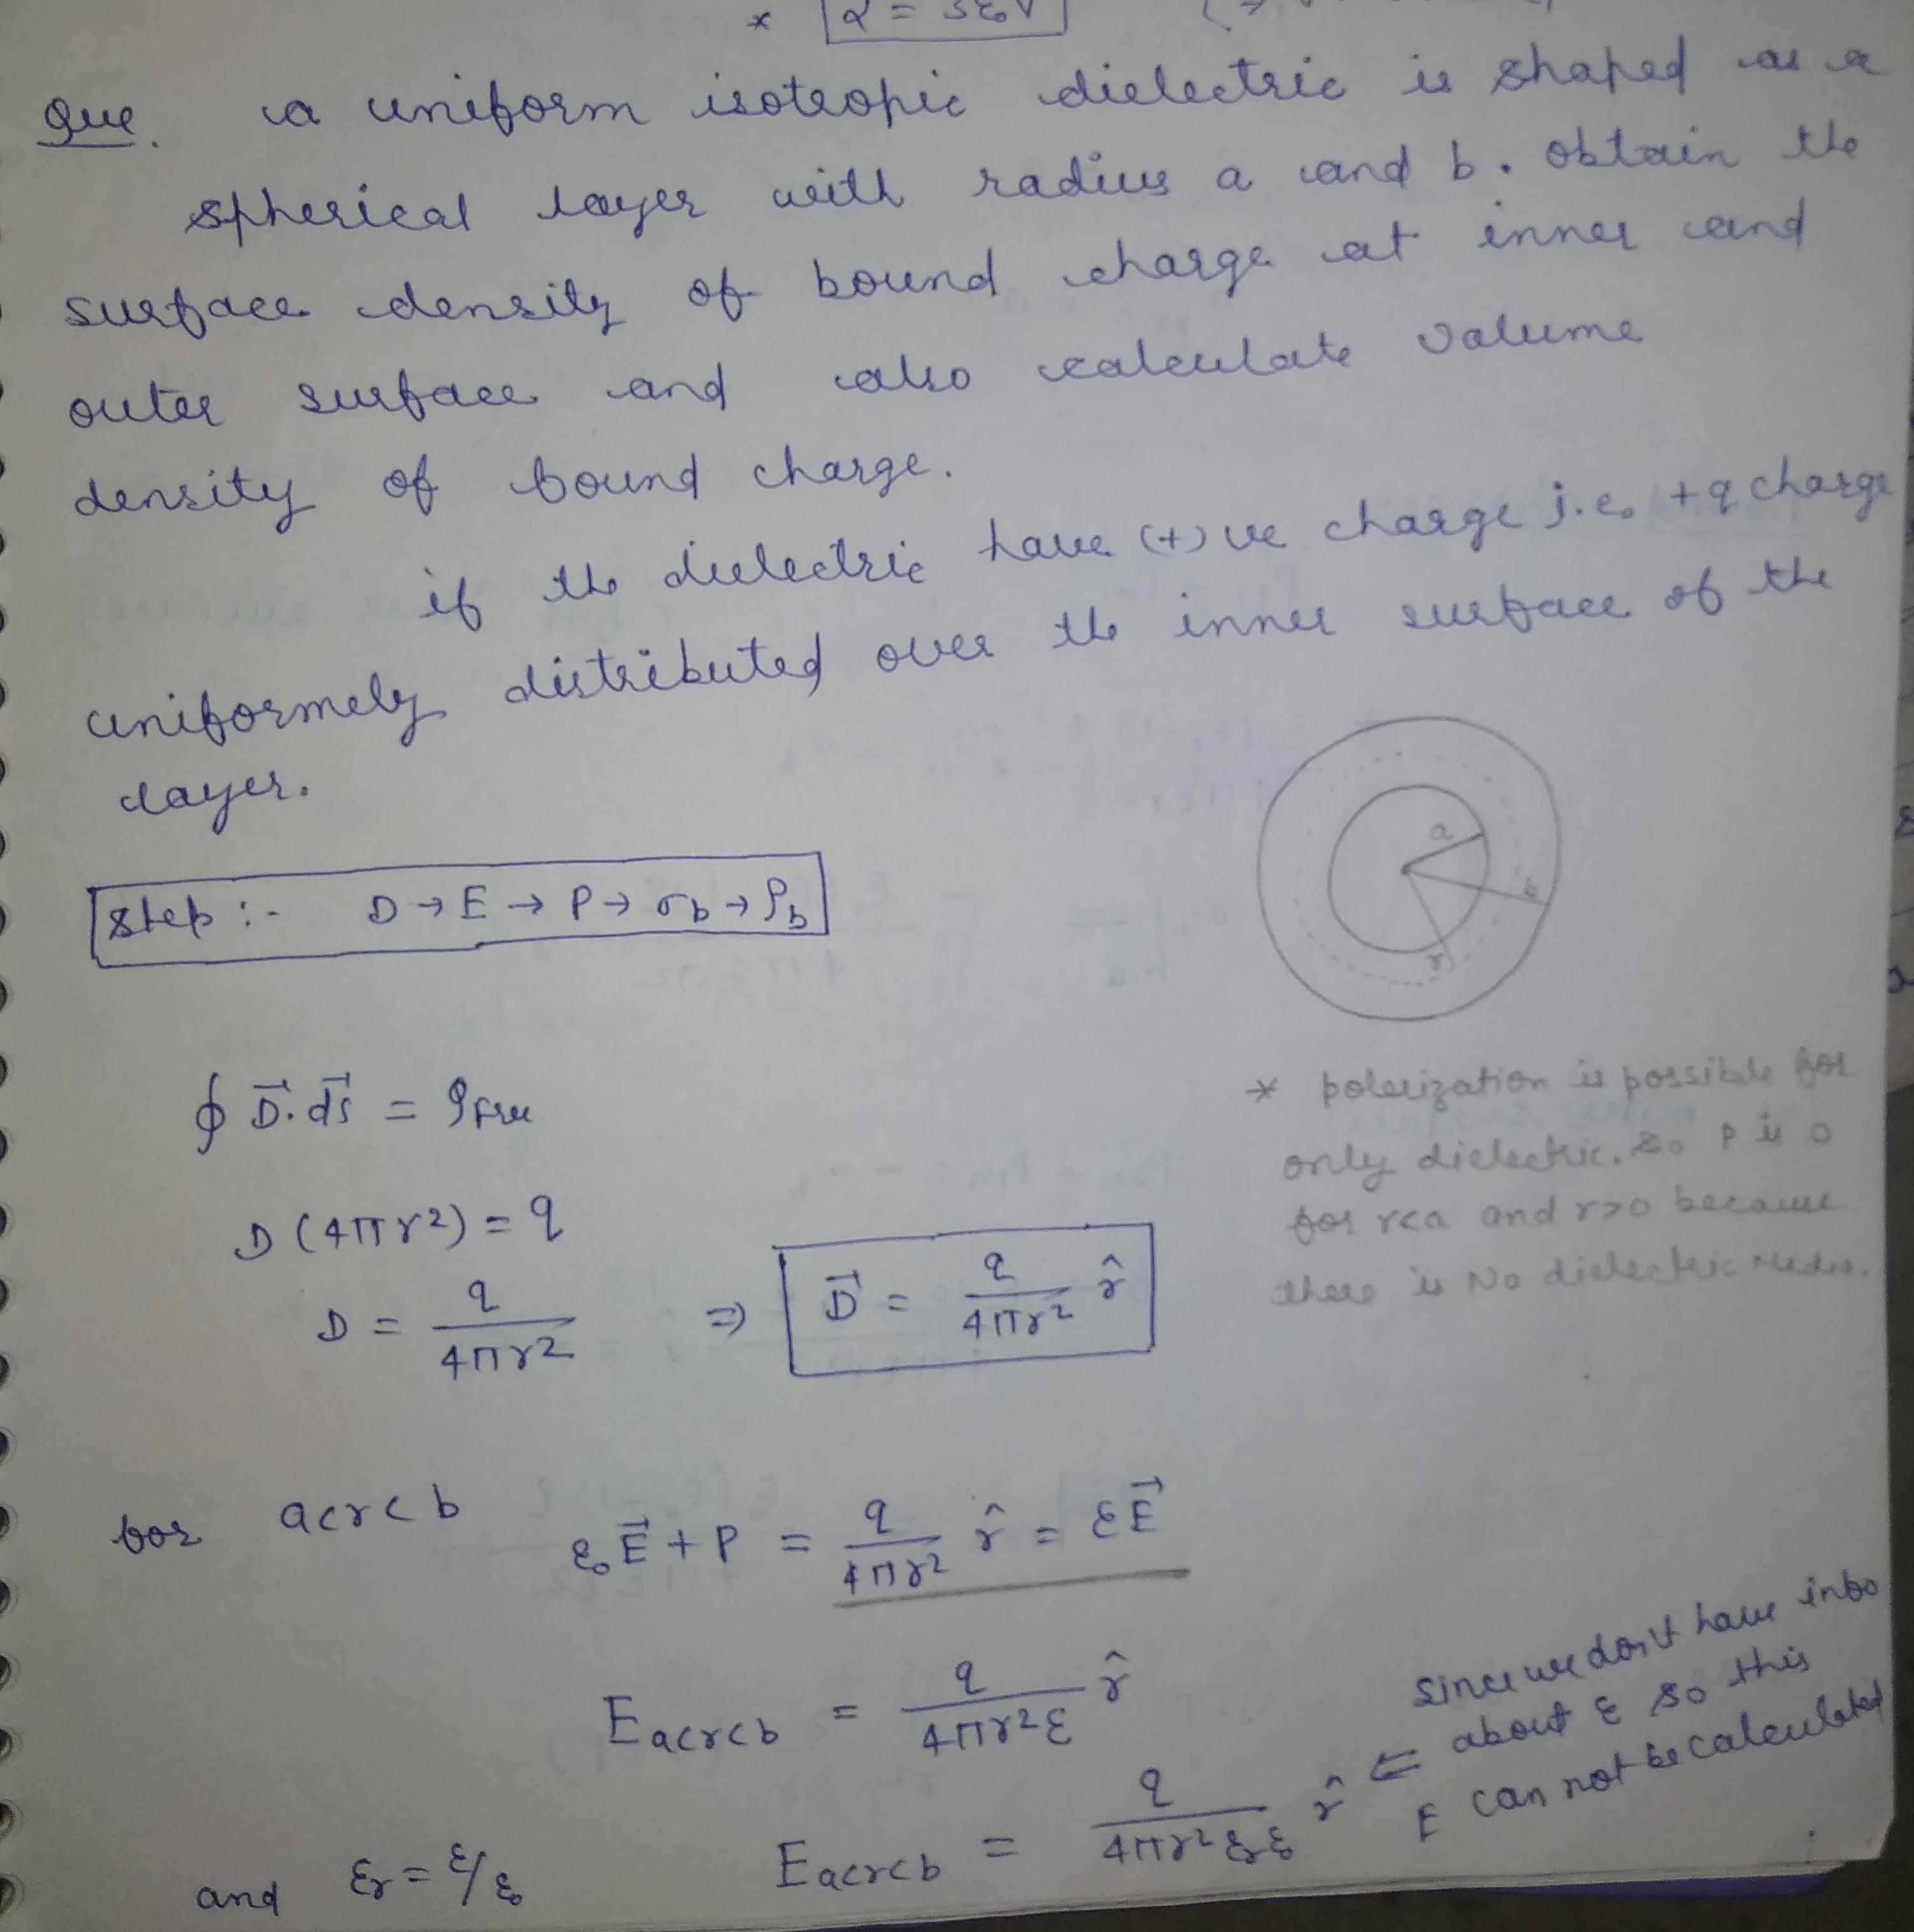 * α = 3ε₀V
Que. a uniform isotropic dielectric is shaped as a
spherical layer with radius a and b. obtain the
surface density of bound charge at inner and
outer surface and also calculate volume
density of bound charge.
if the dielectric have (+)ve charge i.e. +q charge
uniformely distributed over the inner surface of the
layer.
a
b
r
Step :- D → E → P → σb → ρb
∮ D⃗.ds⃗ = qfree
* polarization is possible for
only dielectric. so P is 0
for r<a and r>0 because
there is No dielectric media.
D (4πr²) = q
D = q/4πr² ⇒ D⃗ = q/4πr² r̂
for a<r<b ε₀E⃗ + P = q/4πr² r̂ = εE⃗
E a<r<b = q/4πr²ε r̂
Since we don't have info
about ε so this
E can not be calculated
and εr = ε/ε₀ E a<r<b = q/4πr²εrε₀ r̂ ⇐